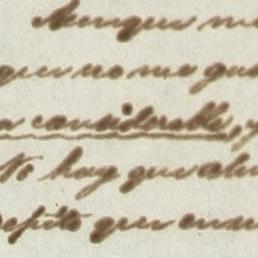 Aunque no
que no me gus
a considerable, y
No hay que alu
repito que